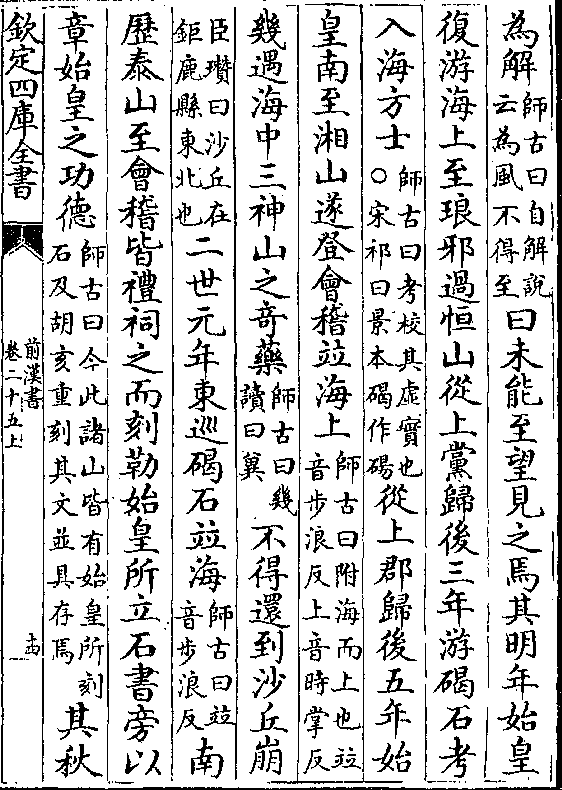 為解師古曰自解說云為風不得至曰未能至望見之焉其明年始皇
復游海上至琅邪過恒山從上黨歸後三年游碣石考
入海方士師古曰考校其虛實也○宋祁曰景本碣作碭從上郡歸後五年始
皇南至湘山遂登會稽竝海上師古曰附海而上也竝音步浪反上音時掌反
幾遇海中三神山之奇藥師古曰幾讀曰冀不得還到沙丘崩
臣瓚曰沙丘在鉅鹿縣東北也二世元年東巡碣石竝海師古曰竝音步浪反南
歷泰山至會稽皆禮祠之而刻勒始皇所立石書旁以
章始皇之功德師古曰今此諸山皆有始皇所刻石及胡亥重刻其文並具存焉其秋
欽定四庫全書
前漢書
卷二十五上
十四